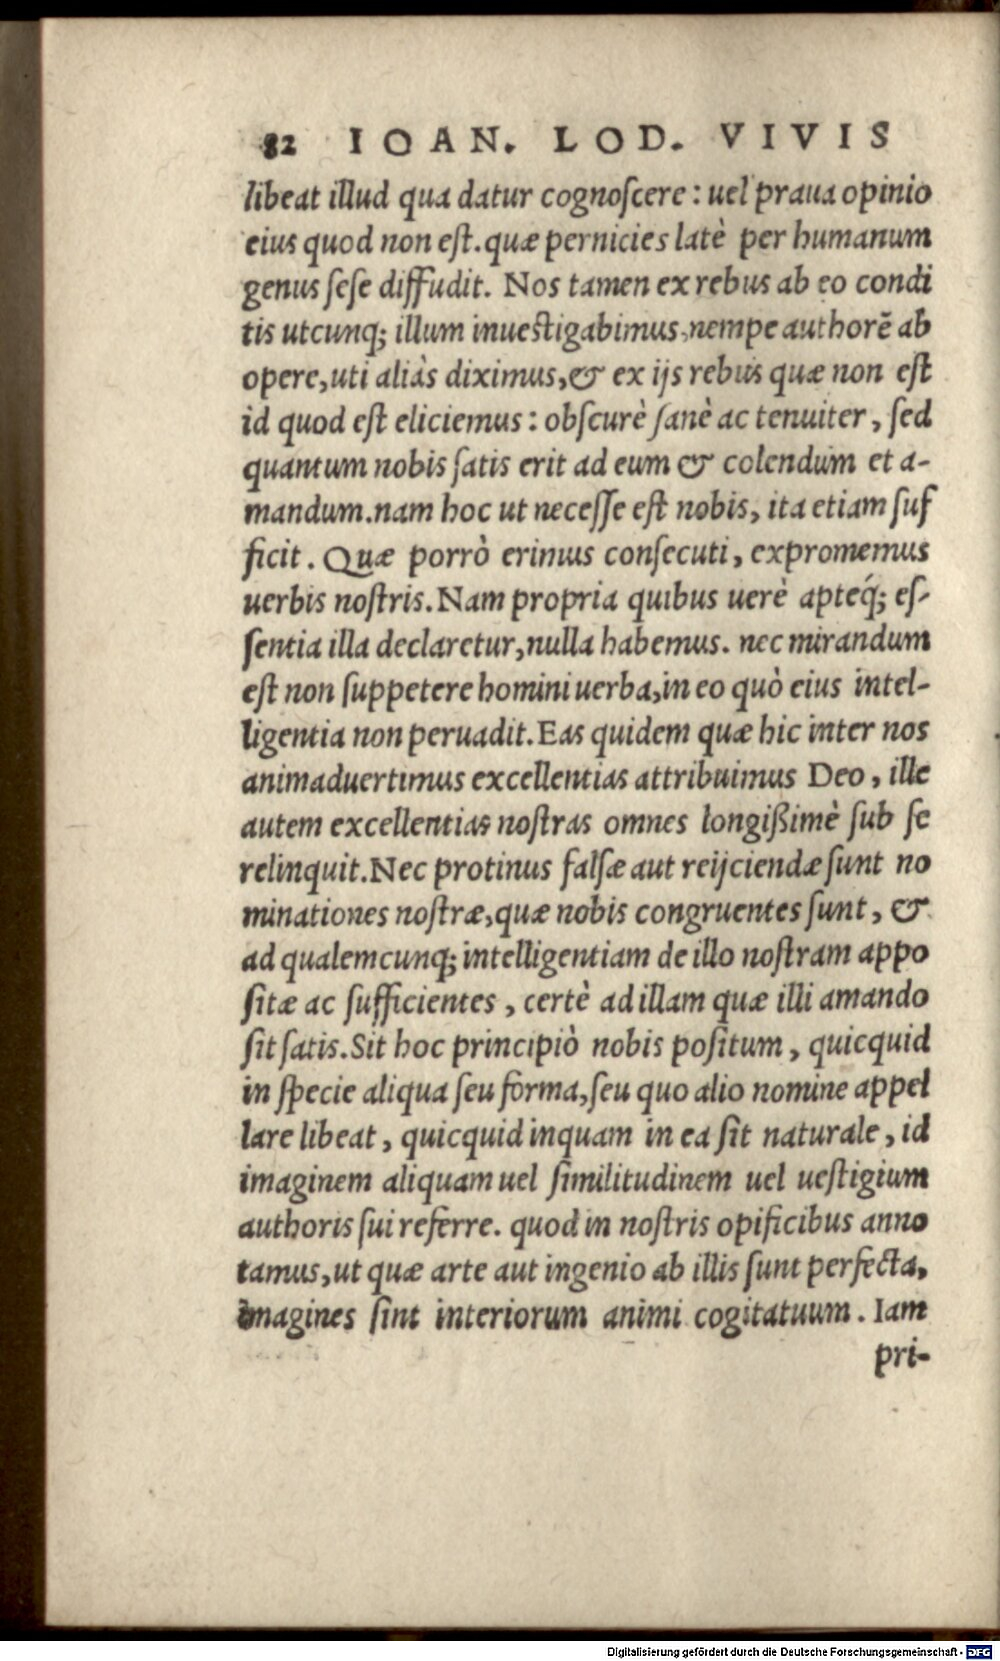 82 IOAN. LOD. VIVIS
libeat illud qua datur cognoſcere: uel praua opinio
eius quod non eſt. quæ pernicies latè per humanum
genus ſeſe diffudit. Nos tamen ex rebus ab eo condi
tis utcunq; illum inueſtigabimus, nempe authorē ab
opere, uti aliàs diximus, & ex ijs rebus quæ non eſt
id quod eſt eliciemus: obſcurè ſanè ac tenuiter, ſed
quantum nobis ſatis erit ad eum & colendum et a-
mandum. nam hoc ut neceſſe eſt nobis, ita etiam ſuf
ficit. Quæ porrò erimus conſecuti, expromemus
uerbis noſtris. Nam propria quibus uerè apteq́; eſ-
ſentia illa declaretur, nulla habemus. nec mirandum
eſt non ſuppetere homini uerba, in eo quò eius intel-
ligentia non peruadit. Eas quidem quæ hic inter nos
animaduertimus excellentias attribuimus Deo, ille
autem excellentias noſtras omnes longißimè ſub ſe
relinquit. Nec protinus falſæ aut reijciendæ ſunt no
minationes noſtræ, quæ nobis congruentes ſunt, &
ad qualemcunq; intelligentiam de illo noſtram appo
ſitæ ac ſufficientes, certè ad illam quæ illi amando
ſit ſatis. Sit hoc principiò nobis poſitum, quicquid
in ſpecie aliqua ſeu forma, ſeu quo alio nomine appel
lare libeat, quicquid inquam in ea ſit naturale, id
imaginem aliquam uel ſimilitudinem uel ueſtigium
authoris ſui referre. quod in noſtris opificibus anno
tamus, ut quæ arte aut ingenio ab illis ſunt perfecta,
imagines ſint interiorum animi cogitatuum. Iam
pri-
Digitalisierung gefördert durch die Deutsche Forschungsgemeinschaft - DFG